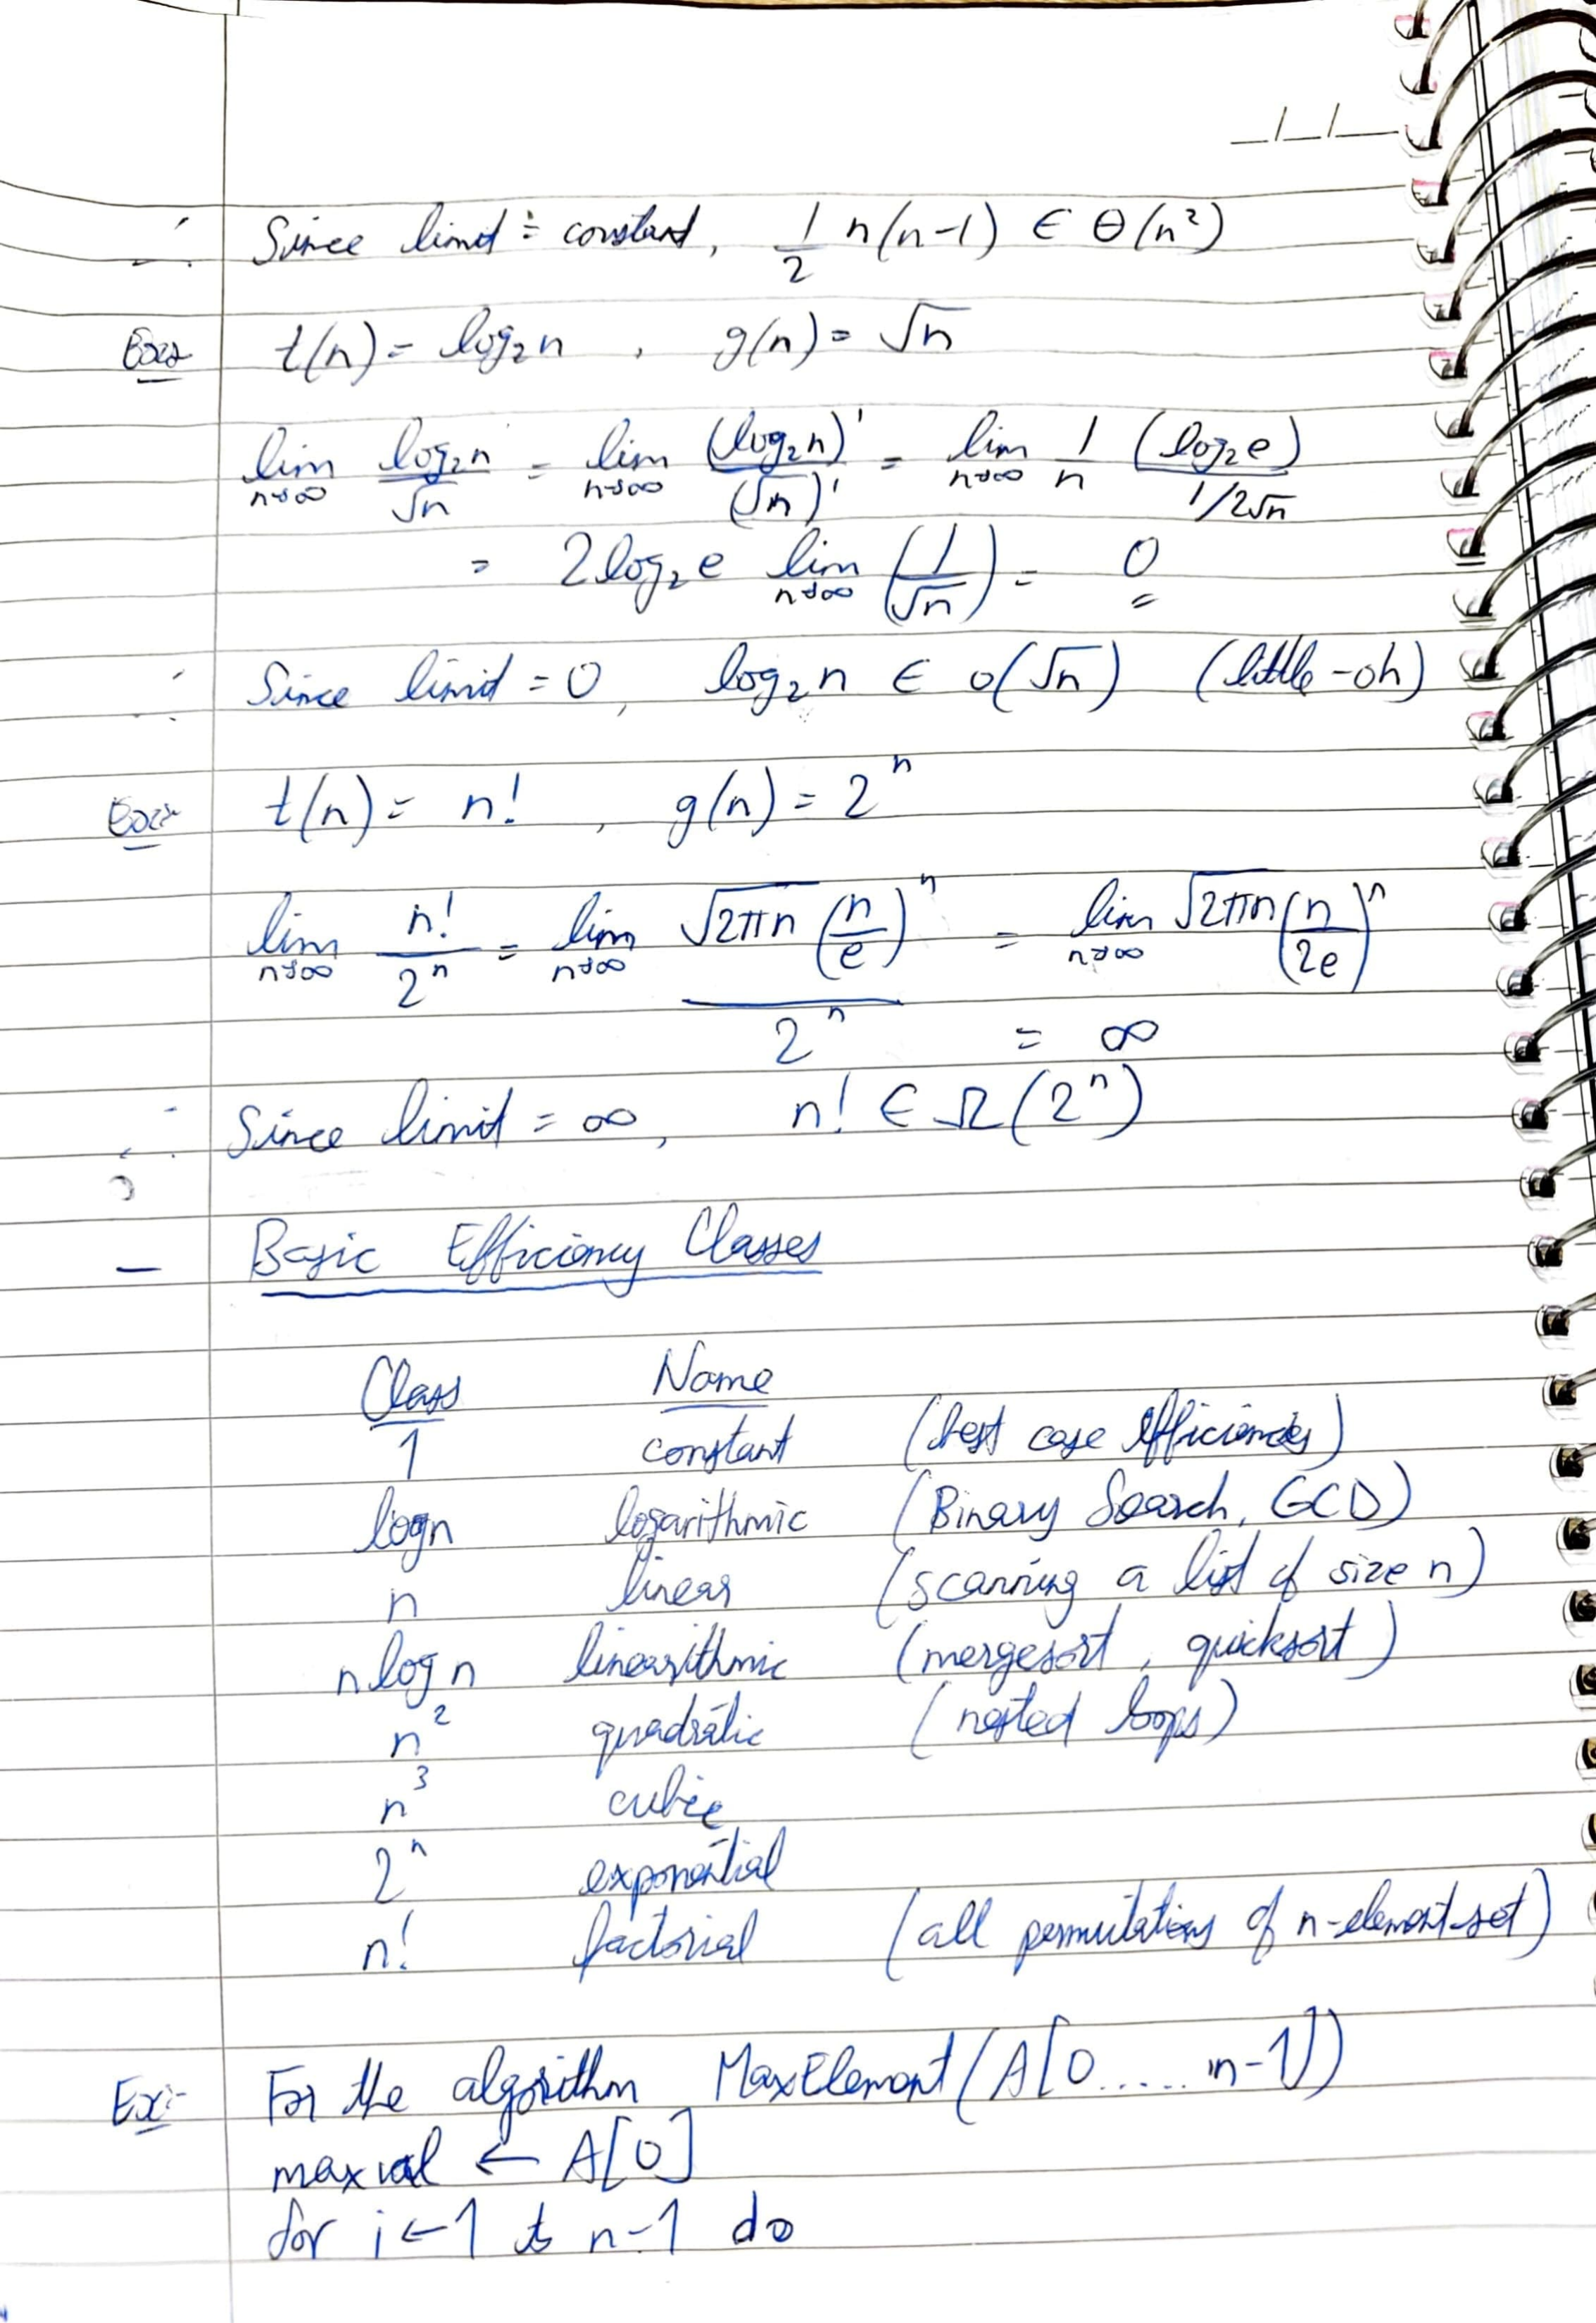 ∴ Since limit = constant, 1/2 n(n-1) ∈ Θ(n²)
Ex:- t(n) = log₂n , g(n) = √n
lim n→∞ log₂n / √n = lim n→∞ (log₂n)' / (√n)' = lim n→∞ 1/n (log₂e) / 1/2√n
= 2log₂e lim n→∞ (1/√n) = 0
∴ Since limit = 0, log₂n ∈ o(√n) (little-oh)
Ex:- t(n) = n! , g(n) = 2ⁿ
lim n→∞ n!/2ⁿ = lim n→∞ √2πn (n/e)ⁿ / 2ⁿ = lim n→∞ √2πn (n/2e)ⁿ
= ∞
∴ Since limit = ∞, n! ∈ Ω(2ⁿ)
– Basic Efficiency Classes
Class Name
1 constant (best case efficiencies)
logn logarithmic (Binary Search, GCD)
n linear (scanning a list of size n)
nlogn linearithmic (mergesort, quicksort)
n² quadratic (nested loops)
n³ cubic
2ⁿ exponential
n! factorial (all permutations of n-element-set)
Ex:- For the algorithm MaxElement(A[0.....n-1])
maxval ← A[0]
for i←1 to n-1 do